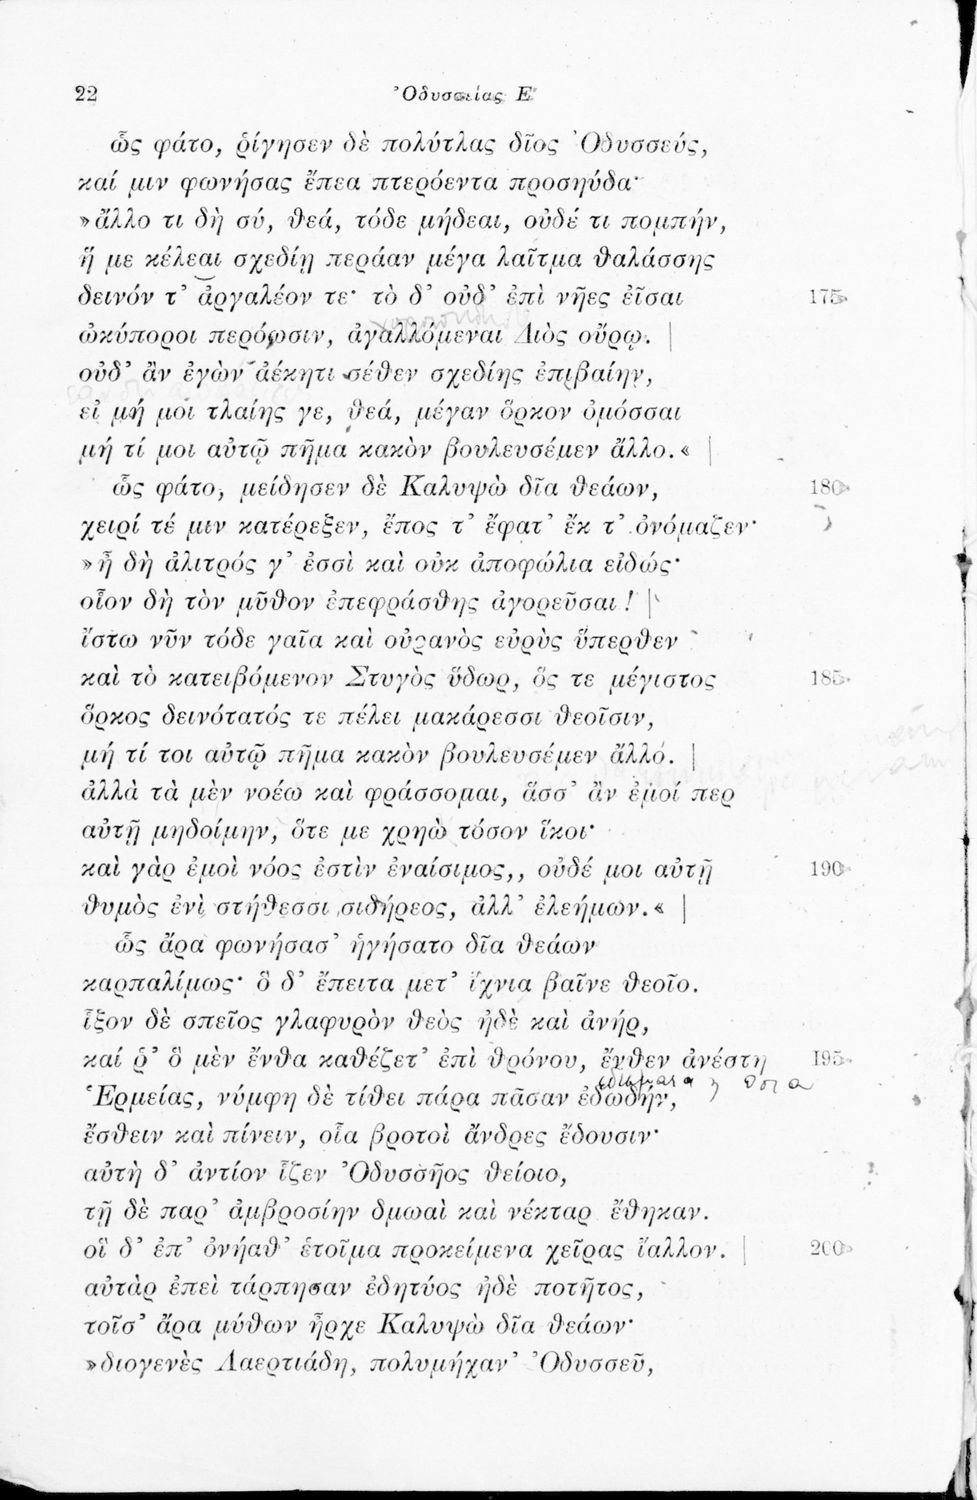 22 Ὀδυσσείας Ε
ὣς φάτο, ῥίγησεν δὲ πολύτλας δῖος Ὀδυσσεύς,
καί μιν φωνήσας ἔπεα πτερόεντα προσηύδα·
»ἄλλο τι δὴ σύ, θεά, τόδε μήδεαι, οὐδέ τι πομπήν,
ἥ με κέλεαι σχεδίῃ περάαν μέγα λαῖτμα θαλάσσης
δεινόν τ᾽ ἀργαλέον τε· τὸ δ᾽ οὐδ᾽ ἐπὶ νῆες ἐῖσαι 175
ὠκύποροι περόωσιν, ἀγαλλόμεναι Διὸς οὔρῳ.
οὐδ᾽ ἂν ἐγὼν ἀέκητι σέθεν σχεδίης ἐπιβαίην,
εἰ μή μοι τλαίης γε, θεά, μέγαν ὅρκον ὀμόσσαι
μή τί μοι αὐτῷ πῆμα κακὸν βουλευσέμεν ἄλλο.«
ὣς φάτο, μείδησεν δὲ Καλυψὼ δῖα θεάων, 180
χειρί τέ μιν κατέρεξεν, ἔπος τ᾽ ἔφατ᾽ ἔκ τ᾽ ὀνόμαζεν·
»ἦ δὴ ἀλιτρός γ᾽ ἐσσὶ καὶ οὐκ ἀποφώλια εἰδώς·
οἷον δὴ τὸν μῦθον ἐπεφράσθης ἀγορεῦσαι!
ἴστω νῦν τόδε γαῖα καὶ οὐρανὸς εὐρὺς ὕπερθεν
καὶ τὸ κατειβόμενον Στυγὸς ὕδωρ, ὅς τε μέγιστος 185
ὅρκος δεινότατός τε πέλει μακάρεσσι θεοῖσιν,
μή τί τοι αὐτῷ πῆμα κακὸν βουλευσέμεν ἄλλο.
ἀλλὰ τὰ μὲν νοέω καὶ φράσσομαι, ἅσσ᾽ ἂν ἐμοί περ
αὐτῇ μηδοίμην, ὅτε με χρηὼ τόσον ἵκοι·
καὶ γὰρ ἐμοὶ νόος ἐστὶν ἐναίσιμος,, οὐδέ μοι αὐτῇ 190
θυμὸς ἐνὶ στήθεσσι σιδήρεος, ἀλλ᾽ ἐλεήμων.«
ὣς ἄρα φωνήσασ᾽ ἡγήσατο δῖα θεάων
καρπαλίμως· ὃ δ᾽ ἔπειτα μετ᾽ ἴχνια βαῖνε θεοῖο.
ἷξον δὲ σπεῖος γλαφυρὸν θεὸς ἠδὲ καὶ ἀνήρ,
καί ῥ᾽ ὃ μὲν ἔνθα καθέζετ᾽ ἐπὶ θρόνου, ἔνθεν ἀνέστη 195
Ἑρμείας, νύμφη δὲ τίθει πάρα πᾶσαν ἐδωδήν,
ἔσθειν καὶ πίνειν, οἷα βροτοὶ ἄνδρες ἔδουσιν·
αὐτὴ δ᾽ ἀντίον ἷζεν Ὀδυσσῆος θείοιο,
τῇ δὲ παρ᾽ ἀμβροσίην δμωαὶ καὶ νέκταρ ἔθηκαν.
οἳ δ᾽ ἐπ᾽ ὀνήαθ᾽ ἑτοῖμα προκείμενα χεῖρας ἴαλλον. 200
αὐτὰρ ἐπεὶ τάρπησαν ἐδητύος ἠδὲ ποτῆτος,
τοῖσ᾽ ἄρα μύθων ἦρχε Καλυψὼ δῖα θεάων·
»διογενὲς Λαερτιάδη, πολυμήχαν᾽ Ὀδυσσεῦ,